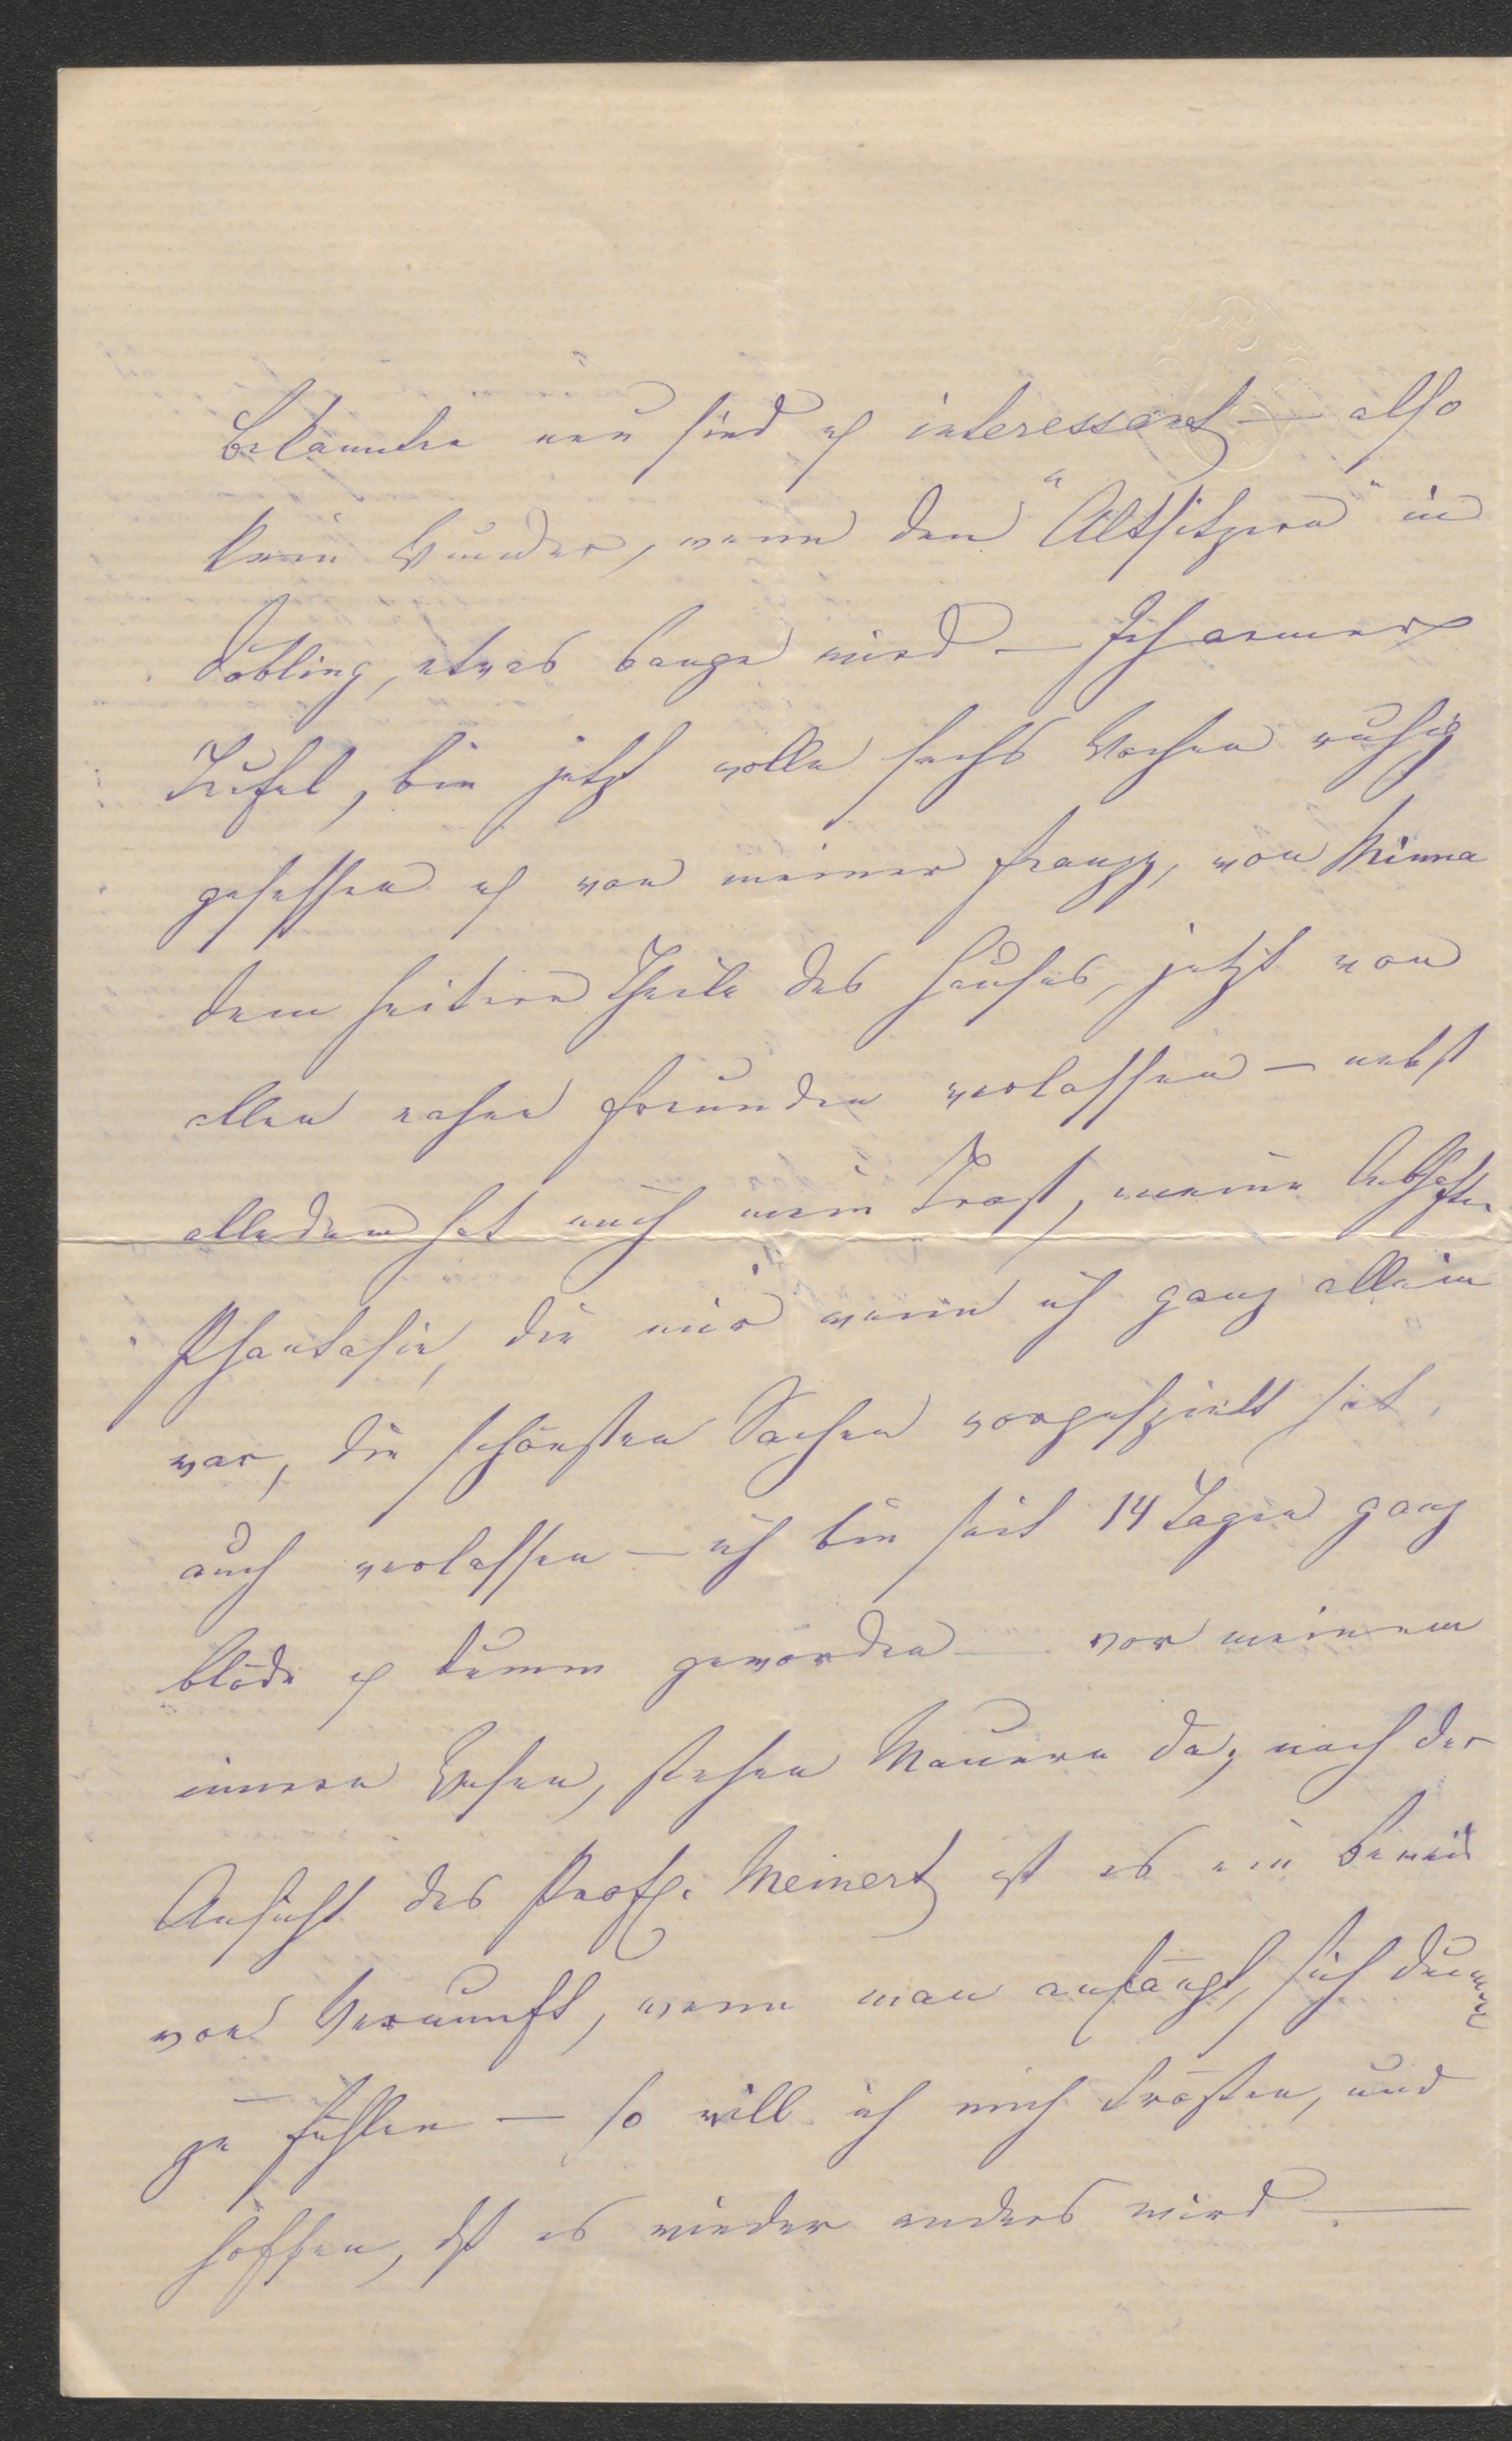 Bekannten neu sind u interessant — also
kein Wunder, wenn den "Altsitzern" in
Döbling, etwas bange wird. — Ich armer
Teufel, bin jetzt volle sechs Wochen ruhig
gesessen u von meiner Franzy, von Minna
dem heitern Theile des Hauses, jetzt von
allen nahen Freunden verlassen — nebst
alledem hat mich mein Trost, meine lebhafte
Phantasie, die mir wenn ich ganz allein
war, die schönsten Sachen vorgespielt hat,
auch verlassen — ich bin seit 14 Tagen ganz
blöde u dumm geworden — vor meinem
innern Sehen, stehen Mauern da; nach der
Ansicht des Prof. Meinert ist es ein Beweis
von Vernunft, wenn man anfängt, sich dumm
zu fühlen — so will ich mich trösten, und
hoffen, dß es wieder anders wird. —